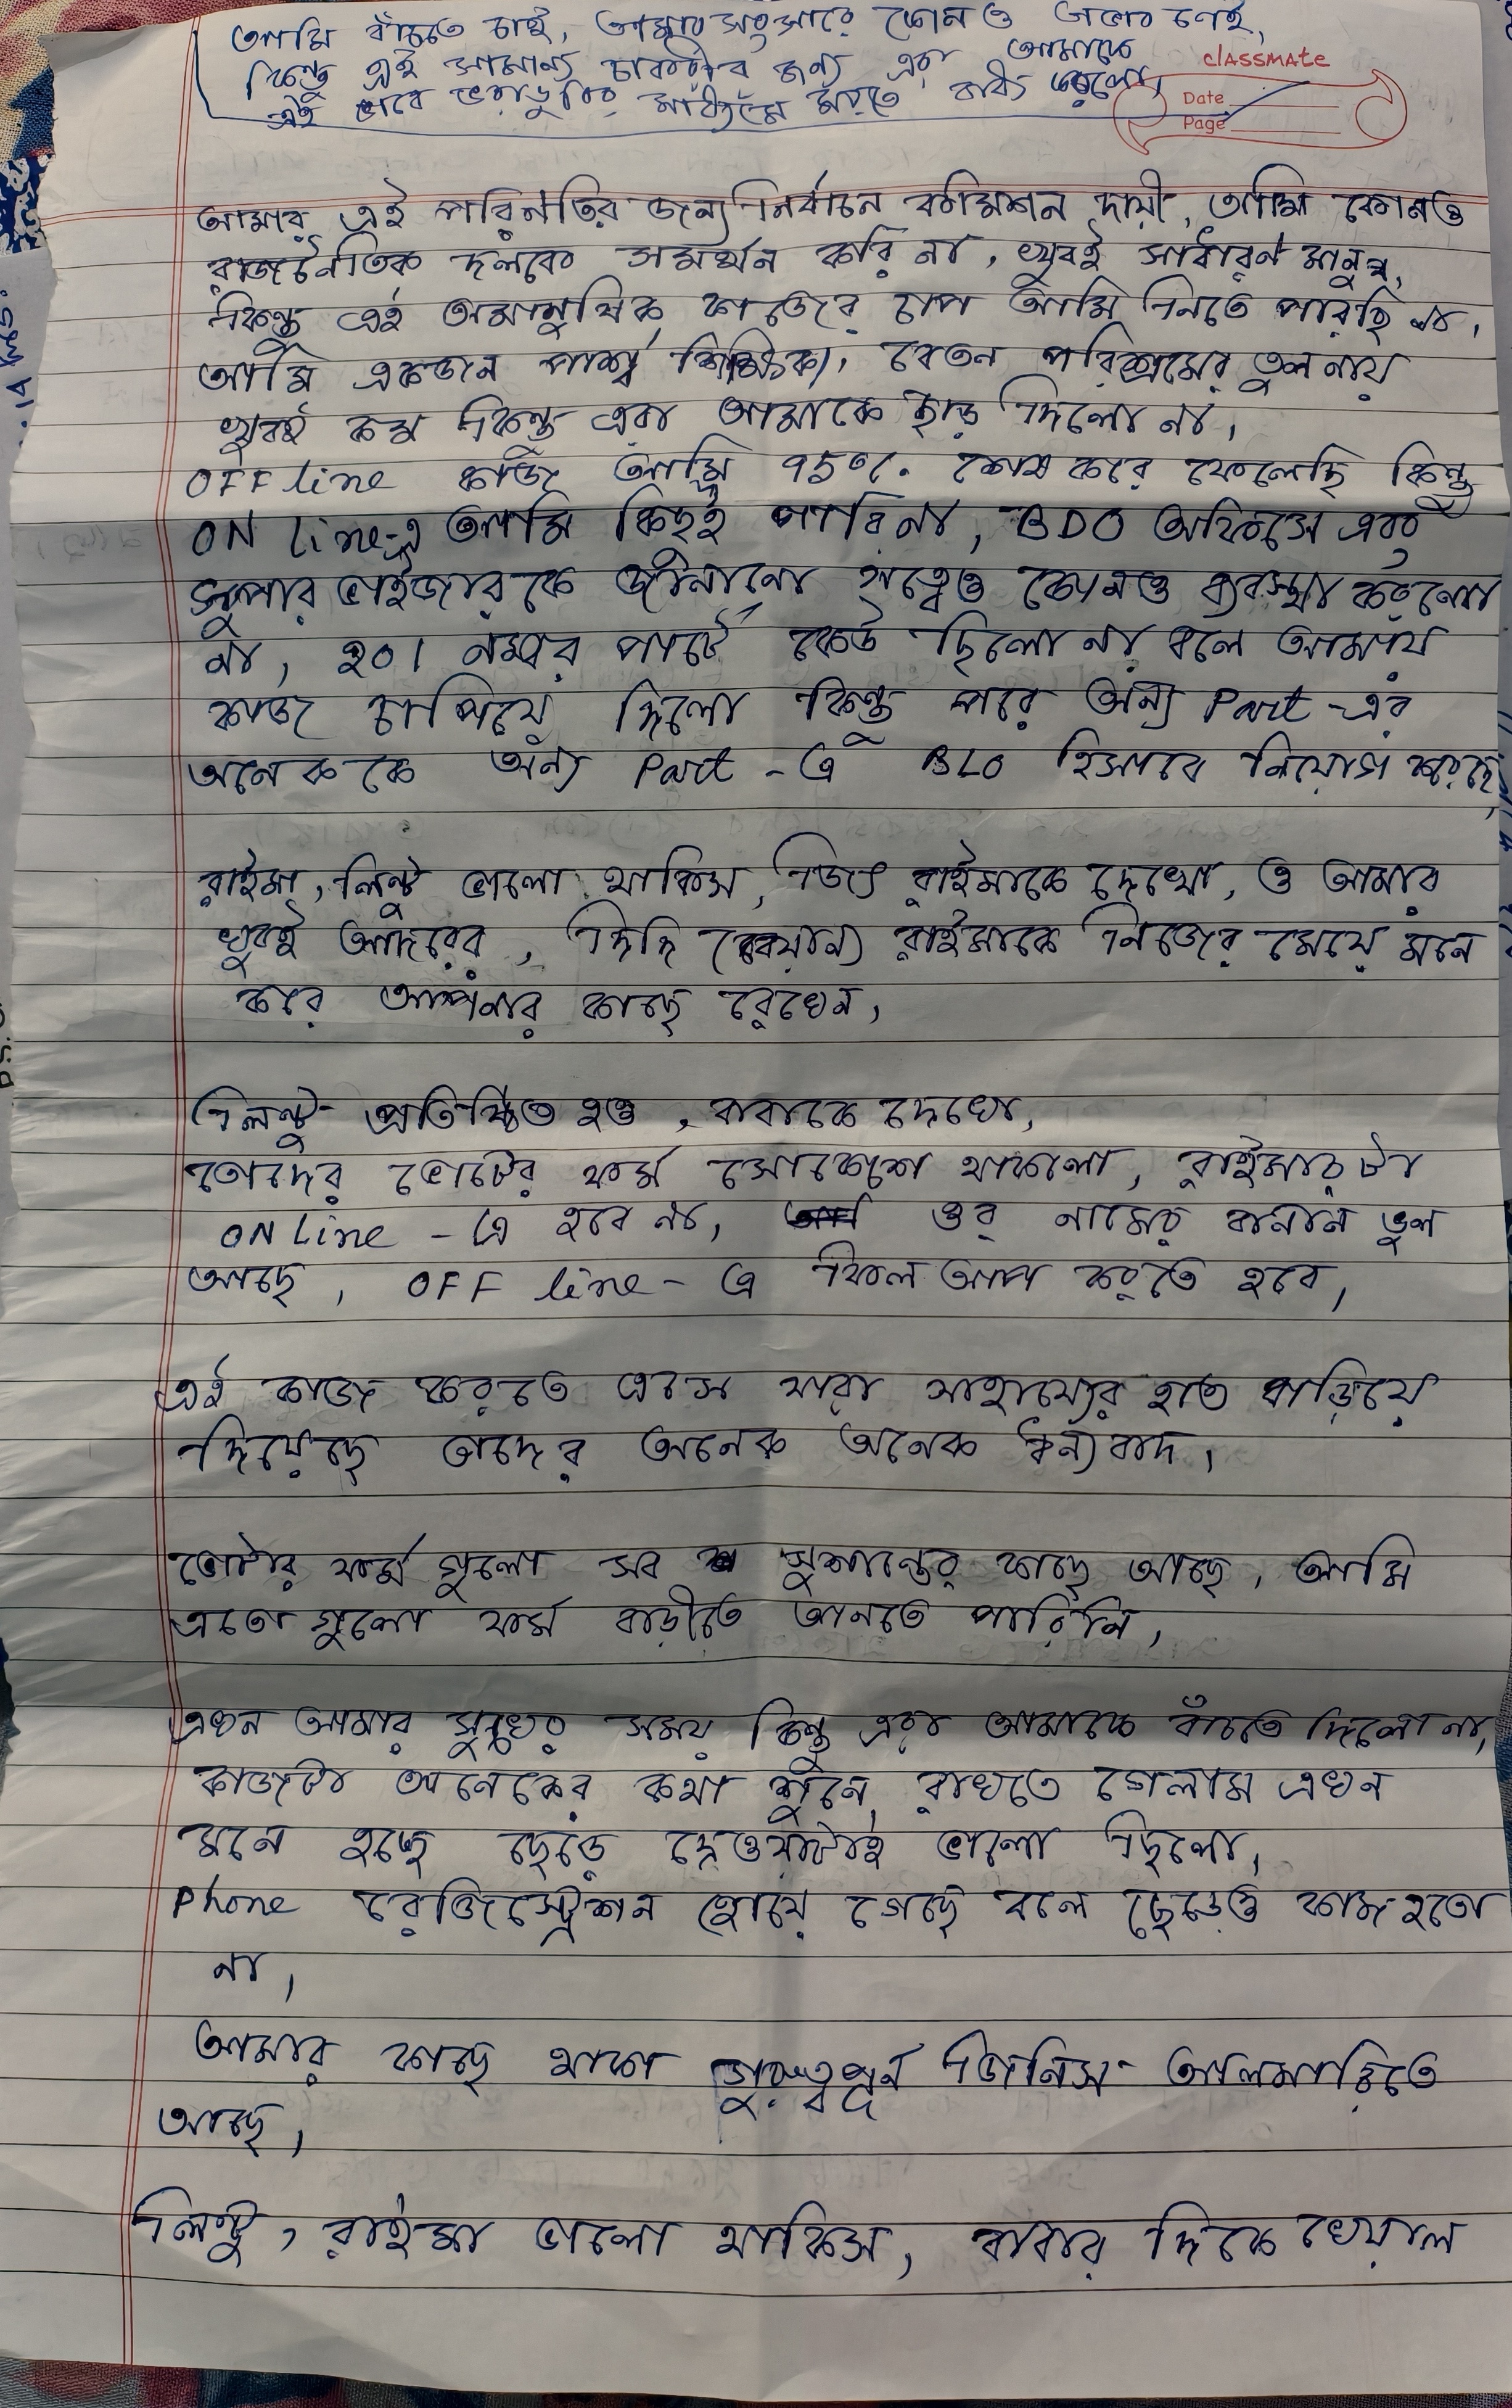 আমি বাঁচতে চাই, আমার সংসারে কোনও অভাব নেই,
কিন্তু এই সামান্য চাকরীর জন্য এরা আমাকে
এই ভাবে ভরাডুবির মাধ্যমে মরতে বাধ্য করলো,
classmate
Date
Page
আমার এই পরিনতির জন্য নির্বাচন কমিশন দায়ী, আমি কোনও
রাজনৈতিক দলকে সমর্থন করি না, খুবই সাধারন মানুষ,
কিন্তু এই অমানুষিক কাজের চাপ আমি নিতে পারছি না,
আমি একজন পার্শ্ব শিক্ষিকা, বেতন পরিশ্রমের তুলনায়
খুবই কম কিন্তু এরা আমাকে ছাড় দিলো না,
OFF line কাজ আমি 95% শেষ করে ফেলেছি কিন্তু
ON line-এ আমি কিছুই পারিনা, BDO অফিসে এবং
সুপারভাইজারকে জানানো সত্ত্বেও কোনও ব্যবস্থা করলো
না, ২০১ নম্বর পার্টে কেউ ছিলো না বলে আমায়
কাজ চাপিয়ে দিলো কিন্তু পরে অন্য Part-এর
অনেককে অন্য Part-এ BLO হিসাবে নিয়োগ করেছে,
রাইমা, লিন্টু ভালো থাকিস, রাইমাকে দেখো, ও আমার
খুবই আদরের, দিদি (বেয়ান) রাইমাকে নিজের মেয়ে মনে
করে আপনার কাছে রেখেন,
লিন্টু প্রতিষ্ঠিত হও, বাবাকে দেখো,
তোদের ভোটের ফর্ম সোকেশে থাকলো, রাইমারটা
ON Line - এ হবে না, ওর নামের বানান ভুল
আছে, OFF line - এ ফিলআপ করতে হবে,
এই কাজ করতে এসে যারা সাহায্যের হাত বাড়িয়ে
দিয়েছে তাদের অনেক অনেক ধন্যবাদ,
ভোটার ফর্ম গুলো সব সুশান্তের কাছে আছে, আমি
এতো গুলো ফর্ম বাড়ীতে আনতে পারিনি,
এখন আমার সুখের সময় কিন্তু এরা আমাকে বাঁচতে দিলো না,
কাজটা অনেকের কথা শুনে রাখতে গেলাম এখন
মনে হচ্ছে ছেড়ে দেওয়াটাই ভালো ছিলো,
Phone রেজিস্ট্রেশন হোয়ে গেছে বলে ছেড়েও কাজ হতো
না,
আমার কাছে থাকা গুরুত্বপূর্ন জিনিস আলমারিতে
আছে,
লিন্টু, রাইমা ভালো থাকিস, বাবার দিকে খেয়াল